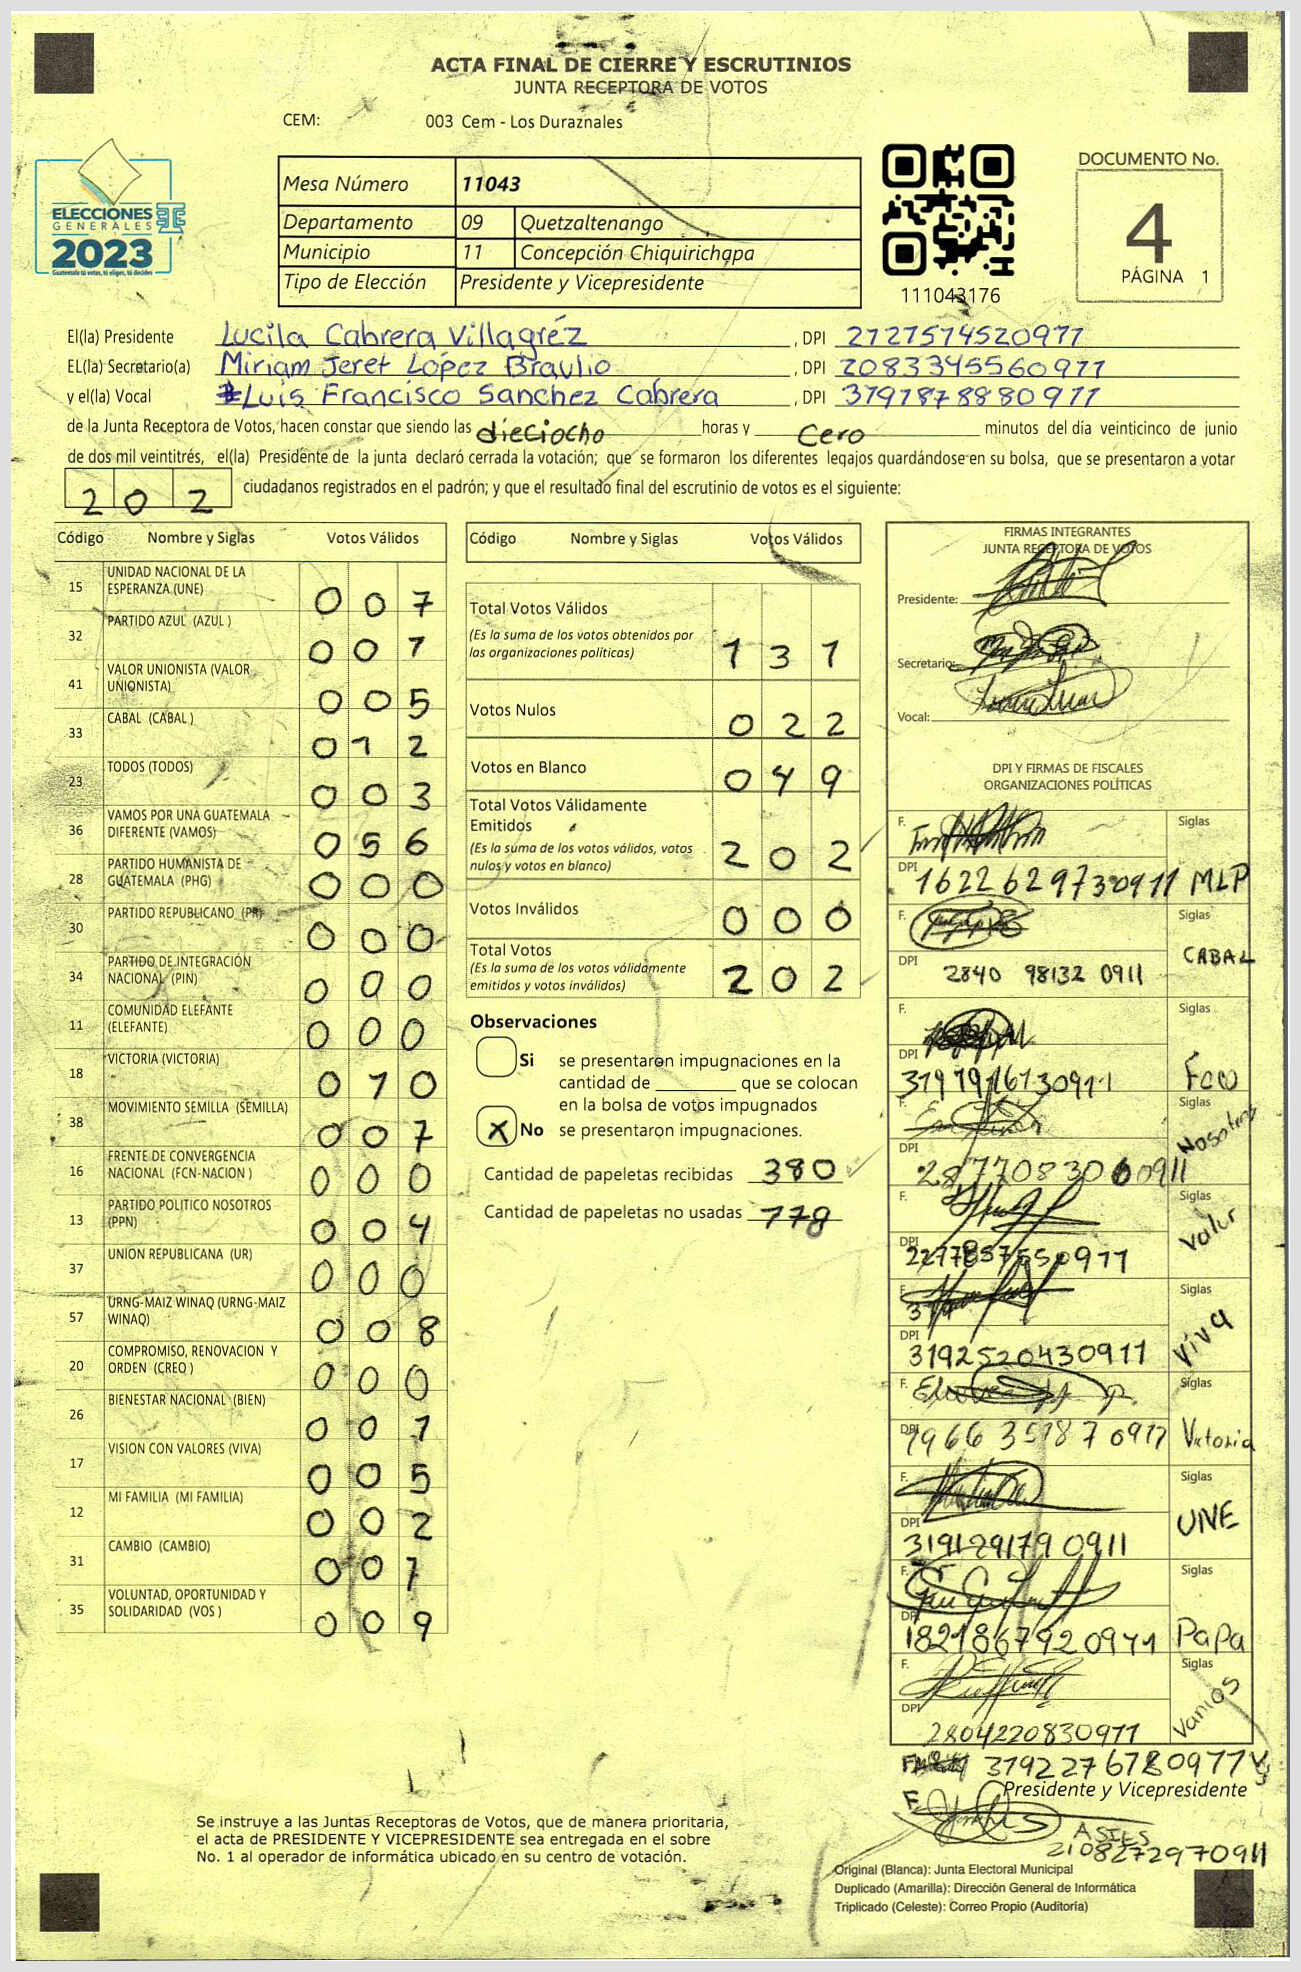 ACTA FINAL DE CIERRE Y ESCRUTINIOS
JUNTA RECEPTORA DE VOTOS
CEM: 003 Cem - Los Duraznales
ELECCIONES
GENERALES
2023
Guatemala tú votas, tú eliges, tú decides
Mesa Número 11043
Departamento 09 Quetzaltenango
Municipio 11 Concepción Chiquirichapa
Tipo de Elección Presidente y Vicepresidente
111043176
DOCUMENTO No.
4
PÁGINA 1
El(la) Presidente Lucila Cabrera Villagréz , DPI 2127574520911
EL(la) Secretario(a) Miriam Jeret López Braulio , DPI 2083345560911
y el(la) Vocal Luis Francisco Sanchez Cabrera , DPI 3191878880911
de la Junta Receptora de Votos, hacen constar que siendo las dieciocho horas y cero minutos del día veinticinco de junio
de dos mil veintitrés, el(la) Presidente de la junta declaró cerrada la votación; que se formaron los diferentes legajos quardándose en su bolsa, que se presentaron a votar
202 ciudadanos registrados en el padrón; y que el resultado final del escrutinio de votos es el siguiente:
Código Nombre y Siglas Votos Válidos
15 UNIDAD NACIONAL DE LA ESPERANZA (UNE) 007
32 PARTIDO AZUL (AZUL ) 001
41 VALOR UNIONISTA (VALOR UNIONISTA) 005
33 CABAL (CABAL ) 012
23 TODOS (TODOS) 003
36 VAMOS POR UNA GUATEMALA DIFERENTE (VAMOS) 056
28 PARTIDO HUMANISTA DE GUATEMALA (PHG) 000
30 PARTIDO REPUBLICANO (PR) 000
34 PARTIDO DE INTEGRACIÓN NACIONAL (PIN) 000
11 COMUNIDAD ELEFANTE (ELEFANTE) 000
18 VICTORIA (VICTORIA) 010
38 MOVIMIENTO SEMILLA (SEMILLA) 007
16 FRENTE DE CONVERGENCIA NACIONAL (FCN-NACION ) 000
13 PARTIDO POLITICO NOSOTROS (PPN) 004
37 UNION REPUBLICANA (UR) 000
57 URNG-MAIZ WINAQ (URNG-MAIZ WINAQ) 008
20 COMPROMISO, RENOVACION Y ORDEN (CREO ) 000
26 BIENESTAR NACIONAL (BIEN) 001
17 VISION CON VALORES (VIVA) 005
12 MI FAMILIA (MI FAMILIA) 002
31 CAMBIO (CAMBIO) 001
35 VOLUNTAD, OPORTUNIDAD Y SOLIDARIDAD (VOS ) 009
Código Nombre y Siglas Votos Válidos
Total Votos Válidos 131
(Es la suma de los votos obtenidos por
las organizaciones políticas)
Votos Nulos 022
Votos en Blanco 049
Total Votos Válidamente
Emitidos 202
(Es la suma de los votos válidos, votos
nulos y votos en blanco)
Votos Inválidos 000
Total Votos 202
(Es la suma de los votos válidamente
emitidos y votos inválidos)
Observaciones
Si se presentaron impugnaciones en la
cantidad de ________ que se colocan
en la bolsa de votos impugnados
X No se presentaron impugnaciones.
Cantidad de papeletas recibidas 380
Cantidad de papeletas no usadas 178
FIRMAS INTEGRANTES
JUNTA RECEPTORA DE VOTOS
Presidente:
Secretario:
Vocal:
DPI Y FIRMAS DE FISCALES
ORGANIZACIONES POLÍTICAS
F. Siglas
DPI 1622629730911 MLP
F. Siglas
DPI 2840 98132 0911 CABAL
F. Siglas
DPI
F. Siglas
DPI 2877083060911 Nosotros
F. Siglas
DPI 2277857550911 Valor
F. Siglas
DPI 3192520430911 Viva
F. Siglas
DPI 1966351870911 Victoria
F. Siglas
DPI 3191291790911 UNE
F. Siglas
DPI 1821867920911 Papa
F. Siglas
DPI 2804220830911 Vamos
3192276780911
Presidente y Vicepresidente
F.
2108272970911
Se instruye a las Juntas Receptoras de Votos, que de manera prioritaria,
el acta de PRESIDENTE Y VICEPRESIDENTE sea entregada en el sobre
No. 1 al operador de informática ubicado en su centro de votación.
Original (Blanca): Junta Electoral Municipal
Duplicado (Amarilla): Dirección General de Informática
Triplicado (Celeste): Correo Propio (Auditoría)